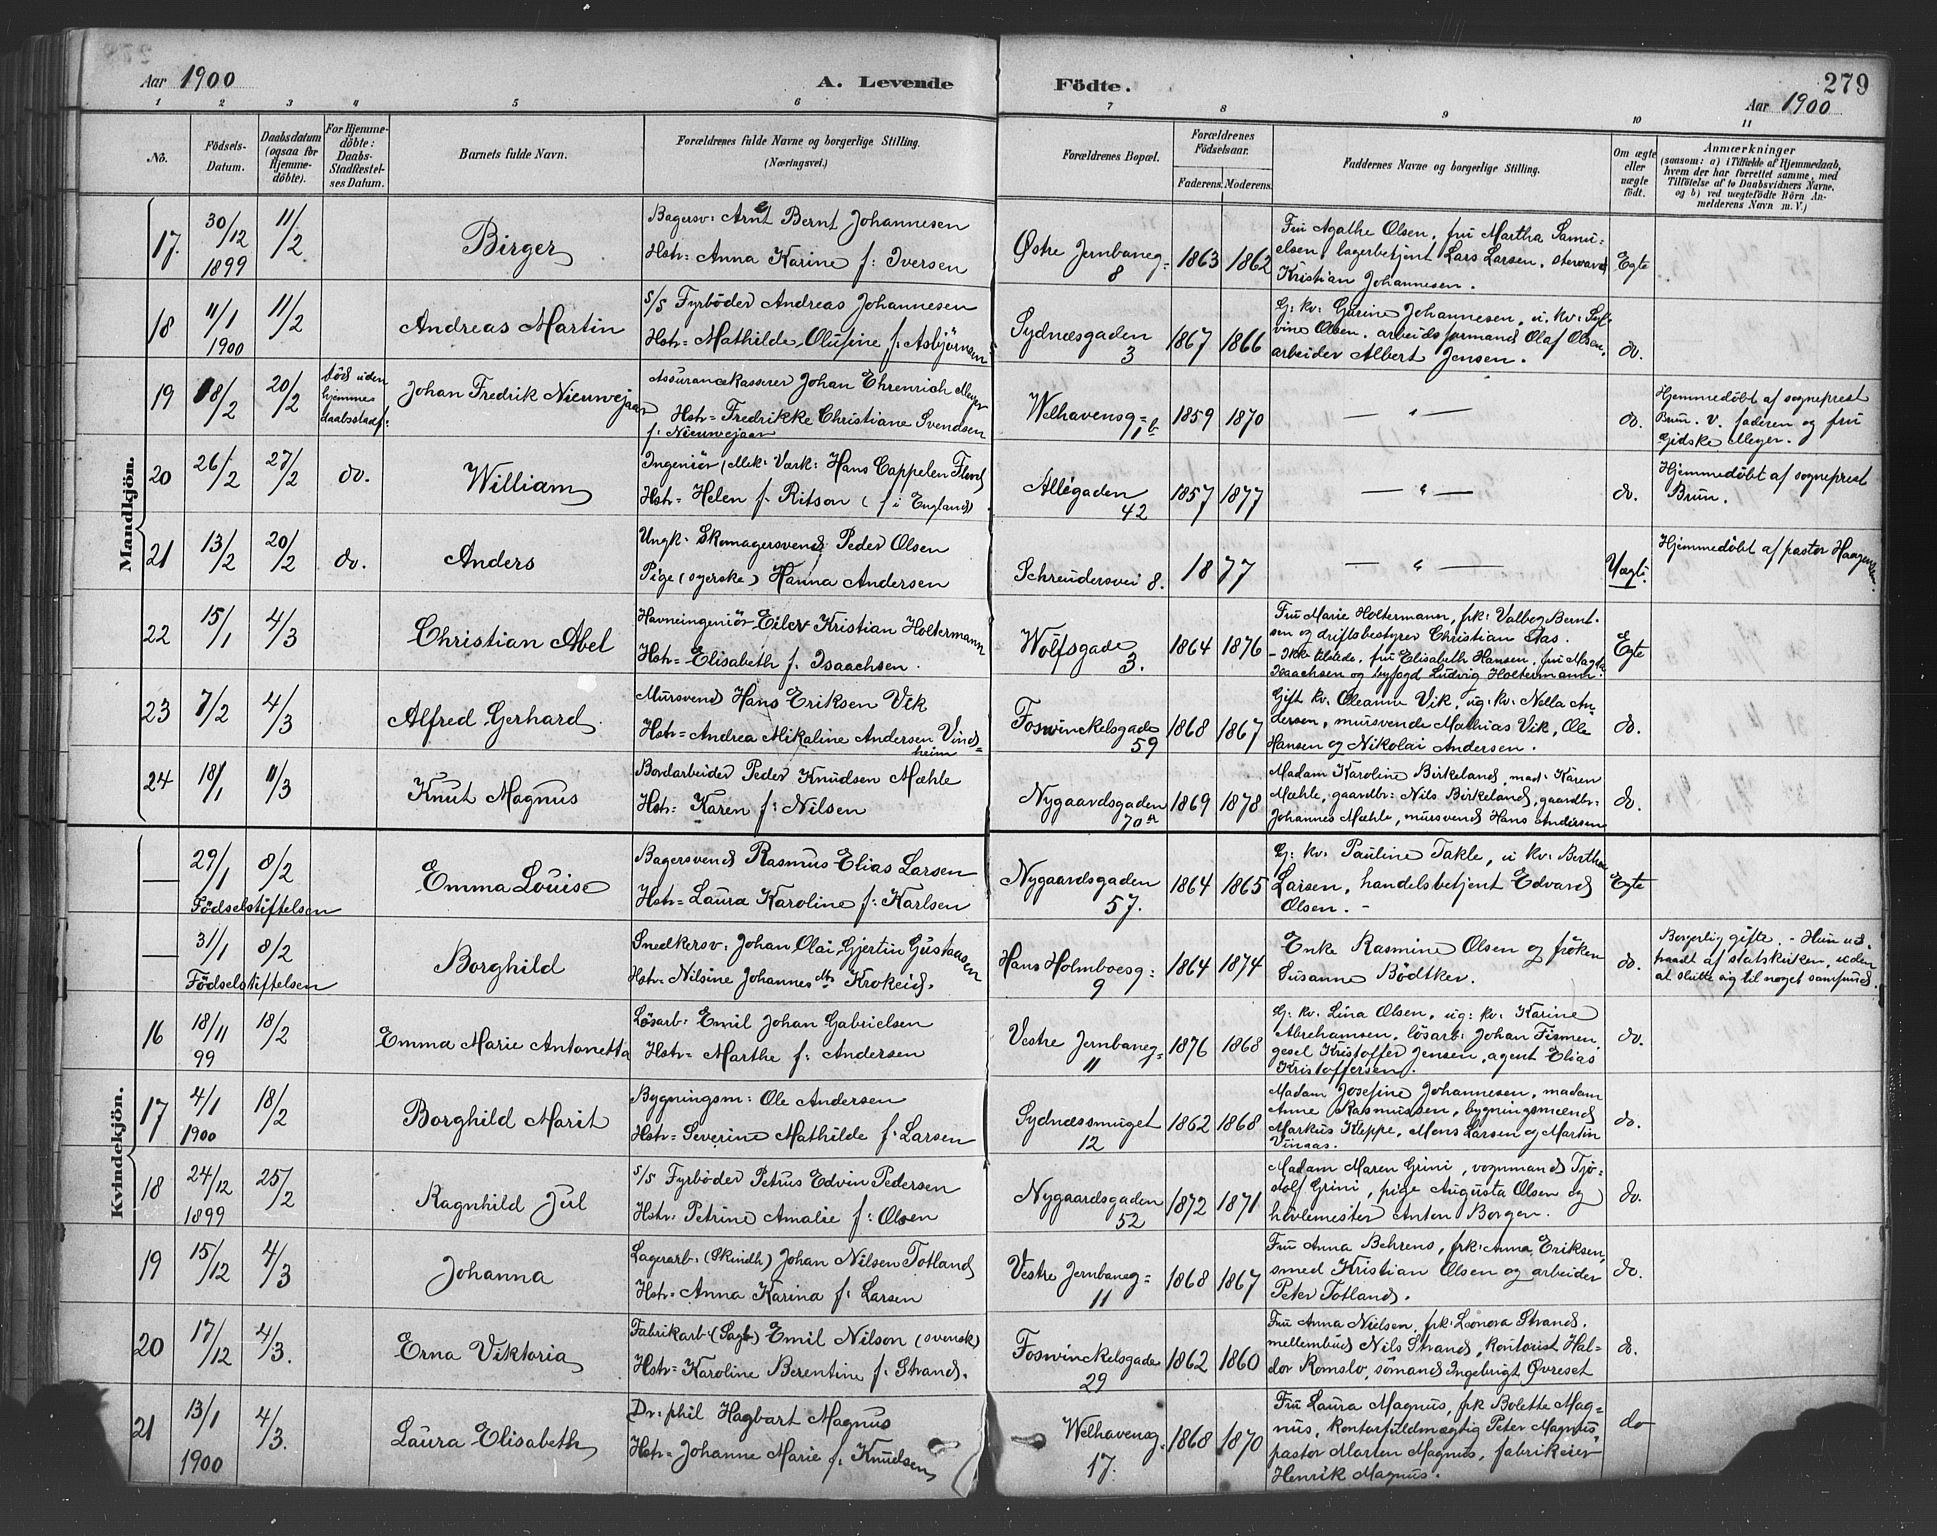 Aar 1900
A. Levende Födte.
279
Aar 1900
1 2 3 4 5 6 7 8 9 10 11
No.
Födsels-Datum.
Daabsdatum (ogsaa for Hjemme-döbte).
For Hjemme-döbte: Daabs-Stadfæstel-ses Datum.
Barnets fulde Navn.
Forældrenes fulde Navne og borgerlige Stilling.
(Næringsvei.)
Forældrenes Bopæl.
Forældrenes Födselsaar.
Faderens. Moderens.
Faddernes Navne og borgerlige Stilling.
Om ægte eller uægte födt.
Anmærkninger
(saasom: a) i Tilfælde af Hjemmedaab, hvem der har forrettet samme, med Tilföielse af to Daabsvidners Navne, og b) ved uægtefödte Börn An-melderens Navn m. V.)
Mandkjön.
17. 30/12 1899 11/2 Birger
Bagersv: Arnt Bernt Johannesen
Hstr= Anna Karine f: Iversen
Østre Jernbaneg= 8 1863 1862
Fru Agathe Olsen, fru Martha Samu-
elsen, lagerbetjent Lars Larsen, steward
Kristian Johannesen.
Egte
18 11/1 1900 11/2 Andreas Martin
s/s Fyrböder Andreas Johannesen
Hstr= Mathilde Olufine f: Asbjörnsen
Sydnæsgaden 3 1867 1866
G: kv: Gurine Johannesen, u: kv: Syl-
vine Olsen, arbeidsformand Olaf Olsen,
arbeider Albert Jensen.
do.
19 18/2 20/2 död uden hjemmedaabsstadf: Johan Fredrik Nieuwejaar
Assurancekasserer Johan Ehrenrich Meyer
Hstr= Fredrikke Christiane Svendsen
f. Nieuwejaar
Welhavensg= 1b 1859 1870
— " —
do.
Hjemmedöbt af sogneprest
Brun. V. faderen og fru
Gidske Meyer.
20 26/2 27/2 do. William
Ingeniör (Mek: Værk: Hans Cappelen
Hstr= Helen f. Ritson (f i England)
Allégaden 42 1857 1877
— " —
do.
Hjemmedöbt af sogneprest
Brun.
21 13/2 20/2 do. Anders
Ungk: Skomagersvend Peder Olsen
Pige (syerske) Hanna Andersen
Schreudersvei 8. 1877
— " —
Uægte
Hjemmedöbt af pastor
22 15/1 4/3 Christian Abel
Havneingeniör Eilev Kristian Holtermann
Hstr= Elisabeth f. Isaachsen.
Wolfsgade 3. 1864 1876
Fru Marie Holtermann, frk: Valbog Bernt-
sen og driftsbestyrer Christian Stas.
- Ikk tilstede, fru Elisabeth Hansen, fru Magda
Isaachsen og byfogd Ludvig Holtermann.
Egte
23 7/2 4/3 Alfred Gerhard
Mursvend Hans Eriksen Vik
Hstr= Andrea Mikaline Andersen Vinds=
heim
Foswinckelsgade 59 1868 1867
Gift kv. Oleanna Vik, ug: kv: Nella An-
dersen, mursvende Mathias Vik, Ole
Hansen og Nikolai Andersen.
do.
24 18/1 11/3 Knut Magnus
Bordarbeider Peder Knudsen Mæhle
Hstr: Karen f: Nilsen
Nygaardsgaden 70a 1869 1878
Madam Karoline Birkeland, mad: Karen
Mæhle, gaardbr: Nils Birkeland, gaardbr:
Johannes Mæhle, mursvend Hans Andersen
do.
Kvindekjön.
— 29/1 8/2 Födselstiftelsen Emma Louise
Bagersvend Rasmus Elias Larsen
Hstr= Laura Karoline f: Karlsen
Nygaardsgaden 57. 1864 1865
G: kv: Pauline Takle, u kv: Berthe
Larsen, handelsbetjent Edvard
Olsen. -
Egte
— 31/1 8/2 Födselstiftelsen Borghild
Snedkersv: Johan Olai Gjertin Gustavsen
Hstr= Nilsine Johannesdtr Krokeid.
Hans Holmboesg= 9 1864 1874
Enke Rasmine Olsen og fröken
Susanne Bödtker.
do.
Borgerlig gifte. - Hun ud-
traadt af statskirken, uden
at slutte sig til noget samfund.
16 18/11 99 18/2 Emma Marie Antonetta
Lösarb: Emil Johan Gabrielsen
Hstr= Marthe f: Andersen
Vestre Jernbaneg= 11 1876 1868
G: kv: Lina Olsen, ug: kv: Karine
Abrahamsen, lösarb: Johan Fismen,
gesel Kristoffer Jensen, agent Elias
Kristoffersen.
do.
17 4/1 1900 18/2 Borghild Marit
Bygningsm: Ole Andersen
Hstr= Severine Mathilde f: Larsen
Sydnæssmuget 12 1862 1868
Madam Josefine Johannesen, madam
Anne Rasmussen, bygningsmænd
Markus Kleppe, Mons Larsen og Martin
Vinaas.
do.
18 24/12 1899 25/2 Ragnhild Jul
s/s Fyrböder Petrus Edvin Pedersen
Hstr: Petrine Amalie f: Olsen
Nygaardsgaden 52 1872 1871
Madam Maren Grini, vognmand Tjö-
stolf Grini, pige Augusta Olsen og
hövlemester Anton Borgen.
do.
19 15/12 4/3 Johanna
Lagerarb: (Skindh) Johan Nilsen Totland
Hstr= Anna Karina f. Larsen
Vestre Jernbaneg= 11 1868 1867
Fru Anna Behrens, frk: Anna Eriksen,
smed Kristian Olsen og arbeider
Peter Totland.
do.
20 17/12 4/3. Erna Viktoria
Fabrikarb (Sagb) Emil Nilson (svensk)
Hstr= Karoline Berentine f. Strand.
Foswinckelsgade 29 1862 1860
Fru Anna Nielsen, frk: Leonora Strand,
mellembud Nils Strand, kontorist Hal-
dor Romslo, sömand Ingebrigt Øvreset
do.
21 13/1 1900 4/3. Laura Elisabeth
Dr: phil Hagbart Magnus
Hstr= Johanne Marie f. Knudsen
Welhavensg. 17. 1868 1870
Fru Laura Magnus, frk Bolette Mag=
nus, kontorfuldmægtig Peter Magnus,
pastor Morten Magnus, fabrikeier
Henrik Magnus.
do